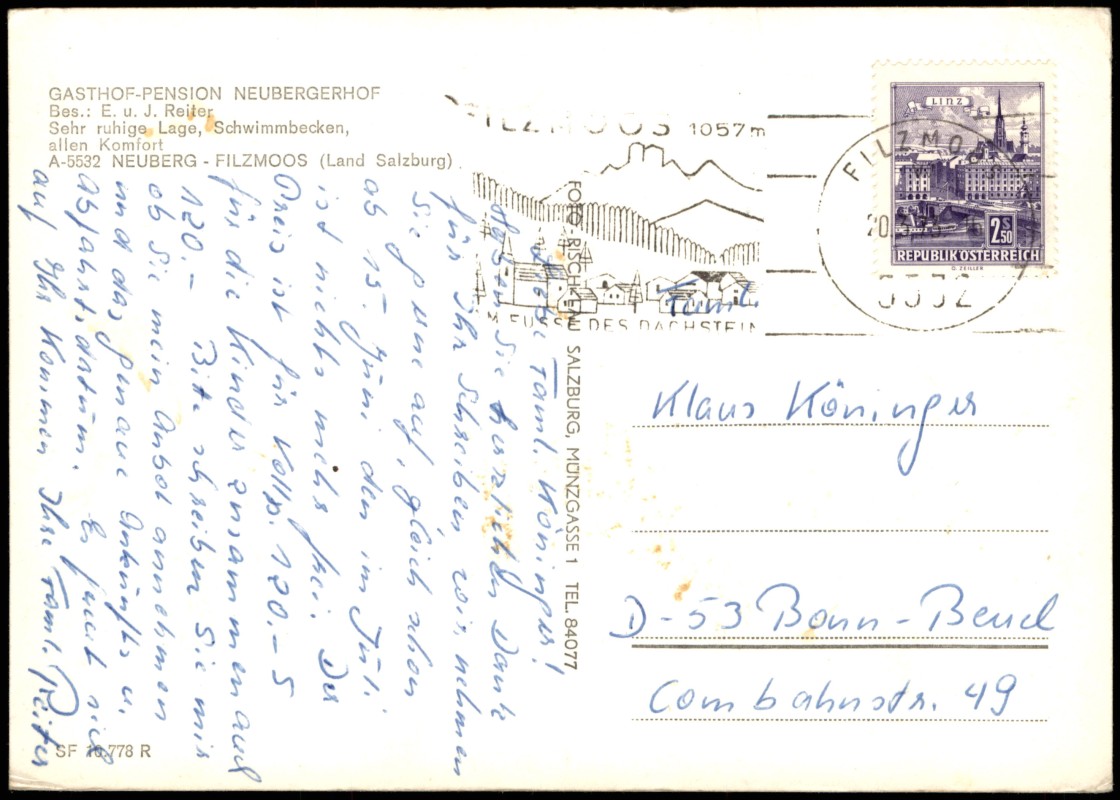 GASTHOF-PENSION NEUBERGERHOF
Bes.: E. u. J. Reiter
Sehr ruhige Lage, Schwimmbecken,
allen Komfort
A-5532 NEUBERG - FILZMOOS (Land Salzburg)
FILZMOOS 1057m
AM FUSSE DES DACHSTEIN
FILZMOOS
5532
LINZ
2.50
REPUBLIK ÖSTERREICH
O. ZEILLER
FOTO RISCH-LAU SALZBURG, MÜNZGASSE 1 TEL. 84077
Liebe Faml. Köninger!
Haben Sie herzlichen Dank
für Ihr Schreiben wir nehmen
Sie gerne auf, gleich schon
ab 15. Juni den im Juli
ist nichts mehr frei. Der
Preis ist für Vollp. 120.- S
für die Kinder zusammen auch
120.- Bitte schreiben Sie mir
ob Sie mein Anbot annehmen
und das genaue Ankunfts u.
Abfahrtsdatum. Es freut sich
auf Ihr Kommen Ihre Faml. Reiter
Faml.
Klaus Köninger
D-53 Bonn-Beuel
Combahnstr. 49
SF 16.778 R